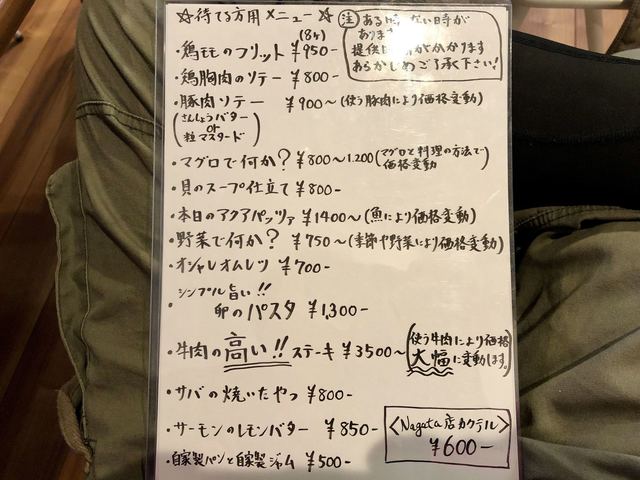 ☆待てる方用メニュー☆
注 ある時ない時が
あります
提供に時間がかかります
あらかじめご了承下さい!
(8ヶ)
・鶏モモのフリット ¥950-
・鶏胸肉のソテー ¥800-
・豚肉ソテー ¥900~(使う豚肉により価格変動)
(さんしょうバター
or
粒マスタード)
・マグロで何か? ¥800~1.200(マグロと料理の方法で
価格変動)
・貝のスープ仕立て ¥800-
・本日のアクアパッツァ ¥1400~(魚により価格変動)
・野菜で何か? ¥750~(季節や野菜により価格変動)
・オシャレオムレツ ¥700-
シンプル旨い!!
・卵のパスタ ¥1,300-
・牛肉の高い!!ステーキ ¥3500~(使う牛肉により価格
大幅に変動します。)
・サバの焼いたやつ ¥800-
・サーモンのレモンバター ¥850-
・自家製パンと自家製ジャム ¥500-
<Nagata店カクテル>
¥600-